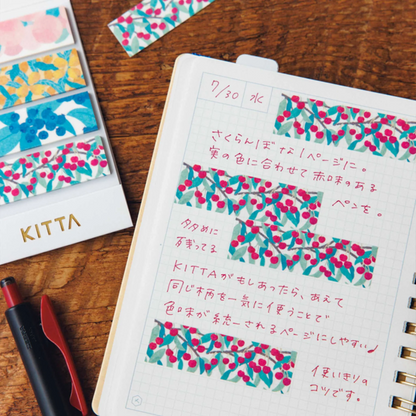 7/30 水
さくらんぼな1ページに。
実の色に合わせて赤味のある
ペンを。
多めに
残ってる
KITTAがもしあったら、あえて
同じ柄を一気に使うことで
色味が統一されるページにしやすい♪
使いきりの
コツです。
KITTA